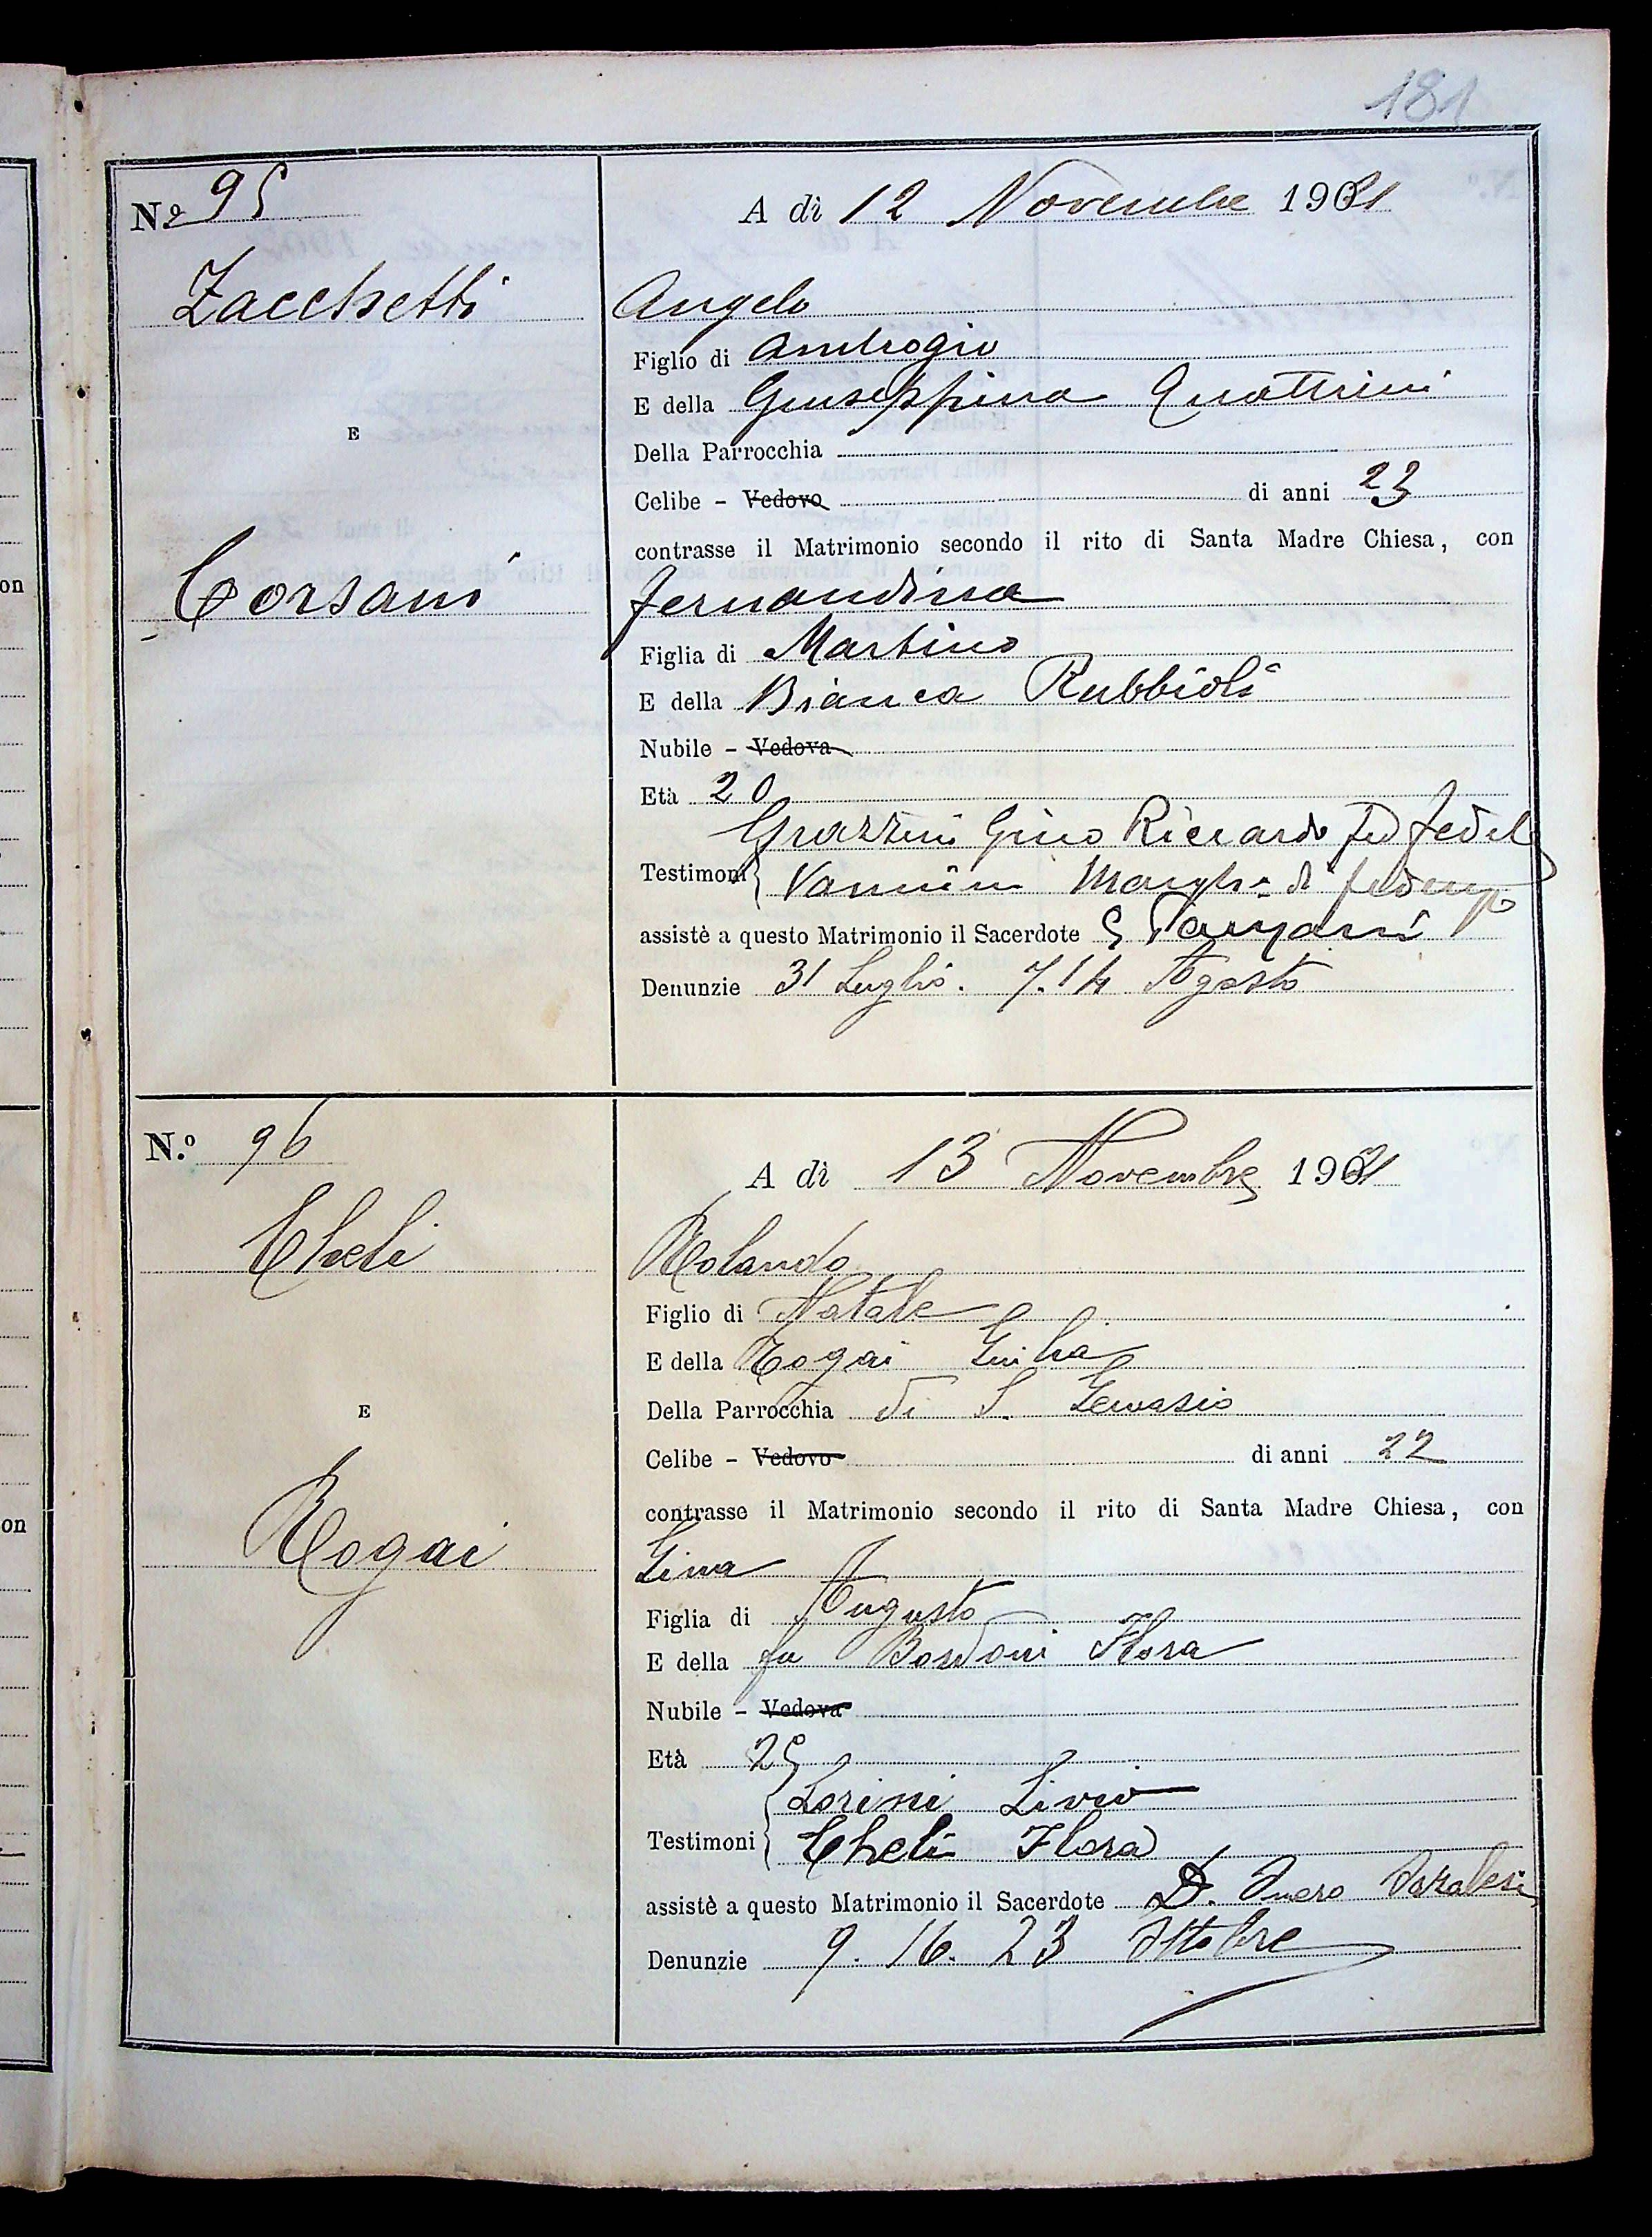 181
on
on
Nº 95
A dì 12 Novembre 1921
Zacchetti
Angelo
Figlio di Ambrogio
E della Giuseppina Quattrini
E
Della Parrocchia
Celibe - Vedovo di anni 23
contrasse il Matrimonio secondo il rito di Santa Madre Chiesa, con
Corsani
Fernandina
Figlia di Martino
E della Bianca Rubbioli
Nubile - Vedova
Età 20
Grazzini Gino Riccardo fu Fedele
Testimoni Vannini Margh.a di Federigo
assistè a questo Matrimonio il Sacerdote
Denunzie 31 Luglio. 7. 14 Agosto
N.º 96
A dì 13 Novembre 1921
Cheli
Rolando
Figlio di Natale
E della Rogai Giulia
E
Della Parrocchia di S. Gervasio
Celibe - Vedovo di anni 22
contrasse il Matrimonio secondo il rito di Santa Madre Chiesa, con
Rogai
Gina
Figlia di Augusto
E della fu Bordoni Flora
Nubile - Vedova
Età 25
Lorini Livio
Testimoni Cheli Flora
assistè a questo Matrimonio il Sacerdote D.
Denunzie 9. 16. 23 Ottobre